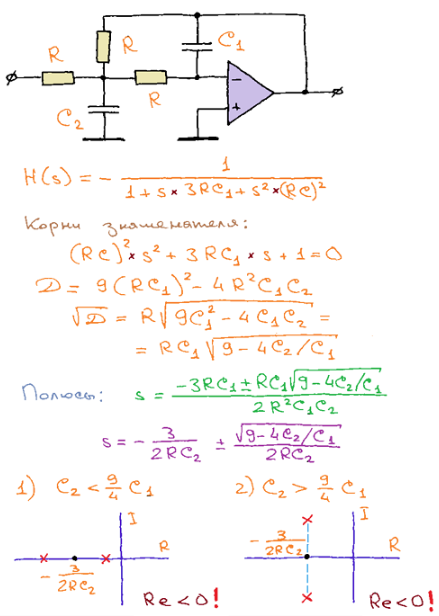 R
C₁
R
R
C₂
−
+
H(s) = − 1 / (1 + s × 3RC₁ + s² × (RC)²)
Корни знаменателя:
(RC)² × s² + 3RC₁ × s + 1 = 0
D = 9(RC₁)² − 4R²C₁C₂
√D = R√(9C₁² − 4C₁C₂) =
= RC₁√(9 − 4C₂/C₁)
Полюсы: s = (−3RC₁ ± RC₁√(9 − 4C₂/C₁)) / 2R²C₁C₂
s = − 3/2RC₂ ± √(9 − 4C₂/C₁) / 2RC₂
1) C₂ < 9/4 C₁
2) C₂ > 9/4 C₁
I
R
− 3/2RC₂
Re < 0!
I
R
− 3/2RC₂
Re < 0!